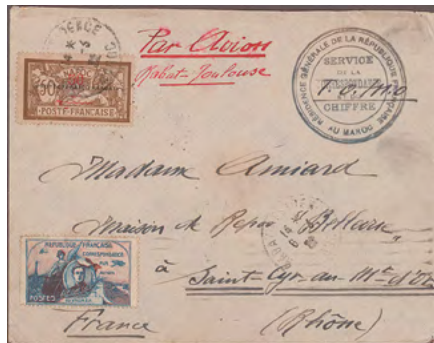 Par Avion
Rabat-Toulouse
RÉSIDENCE GÉNÉRALE DE LA RÉPUBLIQUE FRANÇAISE
SERVICE
DE LA
CHIFFRE
AU MAROC
MAROC
50
POSTE FRANÇAISE
Madame Amiard
Maison de Repos "Bellevue"
à
Saint-Cyr-au-Mt d'Or
France
(Rhône)
RÉPUBLIQUE FRANÇAISE
CORRESPONDANCE
PAR
AVION
POSTES